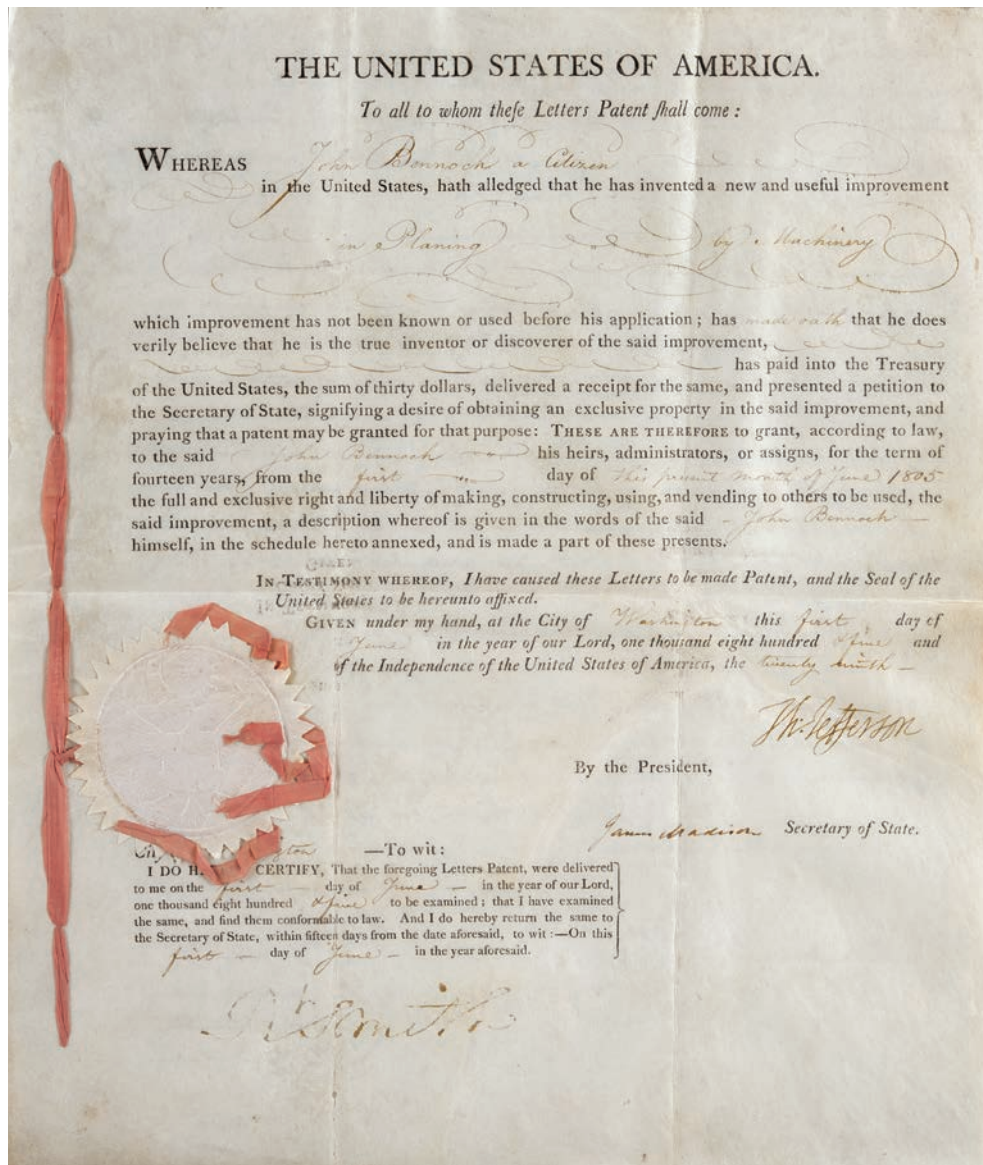 THE UNITED STATES OF AMERICA.
To all to whom theſe Letters Patent ſhall come :
WHEREAS John Bennoch a Citizen
in the United States, hath alledged that he has invented a new and useful improvement
in Planing by Machinery
which improvement has not been known or used before his application ; has made oath that he does
verily believe that he is the true inventor or discoverer of the said improvement,
has paid into the Treasury
of the United States, the sum of thirty dollars, delivered a receipt for the same, and presented a petition to
the Secretary of State, signifying a desire of obtaining an exclusive property in the said improvement, and
praying that a patent may be granted for that purpose: THESE ARE THEREFORE to grant, according to law,
to the said John Bennoch his heirs, administrators, or assigns, for the term of
fourteen years, from the first day of this present month of June 1805
the full and exclusive right and liberty of making, constructing, using, and vending to others to be used, the
said improvement, a description whereof is given in the words of the said John Bennoch
himself, in the schedule hereto annexed, and is made a part of these presents.
IN TESTIMONY WHEREOF, I have caused these Letters to be made Patent, and the Seal of the
United States to be hereunto affixed.
GIVEN under my hand, at the City of Washington this first day of
June in the year of our Lord, one thousand eight hundred & five and
of the Independence of the United States of America, the twenty ninth
Th: Jefferson
By the President,
James Madison Secretary of State.
—To wit :
I DO H CERTIFY, That the foregoing Letters Patent, were delivered
to me on the first day of June in the year of our Lord,
one thousand eight hundred & five to be examined ; that I have examined
the same, and find them conformable to law. And I do hereby return the same to
the Secretary of State, within fifteen days from the date aforesaid, to wit :—On this
first day of June in the year aforesaid.
Smith